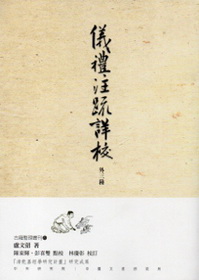 儀禮注疏詳校
外三種
古籍整理叢刊
盧文弨 著
陳東輝、彭喜雙 點校 林慶彰 校訂
「清乾嘉經學研究計畫」研究成果